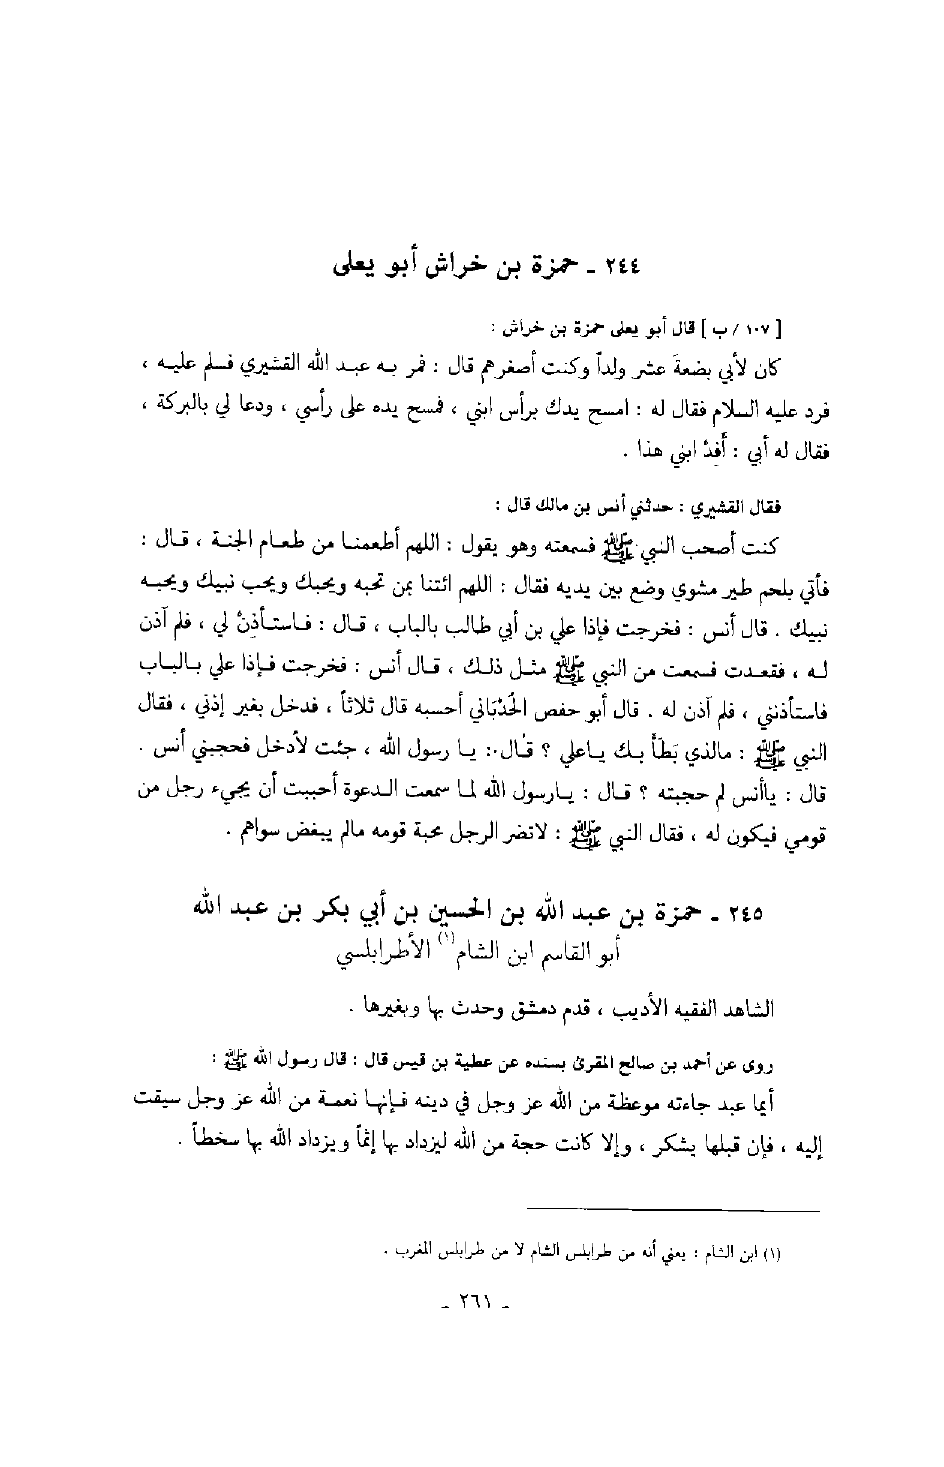 ٢٤٤ ـ حمزة بن خراش أبو يعلى
[ ١٠٧ / ب ] قال أبو يعلى حمزة بن خراش :
كان لأبي بضعةَ عشر ولداً وكنت أصغرهم قال : فمر به عبد الله القشيري فسلم عليه ،
فرد عليه السلام فقال له : امسح يدك برأس ابني ، فمسح يده على رأسي ، ودعا لي بالبركة ،
فقال له أبي : أَفِدْ ابني هذا .
فقال القشيري : حدثني أنس بن مالك قال :
كنت أصحب النبي ﷺ فسمعته وهو يقول : اللهم أطعمنا من طعام الجنة ، قال :
فأتي بلحم طير مشوي وضع بين يديه فقال : اللهم ائتنا بمن تحبه ويحبك ويحب نبيك ويحبه
نبيك . قال أنس : فخرجت فإذا علي بن أبي طالب بالباب ، قال : فاستأذنْ لي ، فلم آذن
له ، فقعدت فسمعت من النبي ﷺ مثل ذلك ، قال أنس : فخرجت فإذا علي بالباب
فاستأذنني ، فلم آذن له . قال أبو حفص الحُدْبَاني أحسبه قال ثلاثاً ، فدخل بغير إذني ، فقال
النبي ﷺ : مالذي بَطَأَ بك ياعلي ؟ قال : يا رسول الله ، جئت لأدخل فحجبني أنس .
قال : ياأنس لم حجبته ؟ قال : يارسول الله لما سمعت الدعوة أحببت أن يجيء رجل من
قومي فيكون له ، فقال النبي ﷺ : لاتضر الرجل محبة قومه مالم يبغض سواهم .
٢٤٥ ـ حمزة بن عبد الله بن الحسين بن أبي بكر بن عبد الله
أبو القاسم ابن الشام(١) الأطرابلسي
الشاهد الفقيه الأديب ، قدم دمشق وحدث بها وبغيرها .
روى عن أحمد بن صالح المقرئ بسنده عن عطية بن قيس قال : قال رسول الله ﷺ :
أيما عبد جاءته موعظة من الله عز وجل في دينه فإنها نعمة من الله عز وجل سيقت
إليه ، فإن قبلها بشكر ، وإلا كانت حجة من الله ليزداد بها إثماً ويزداد الله بها سخطاً .
(١) ابن الشام : يعني أنه من طرابلس الشام لا من طرابلس المغرب .
ـ ٢٦١ ـ